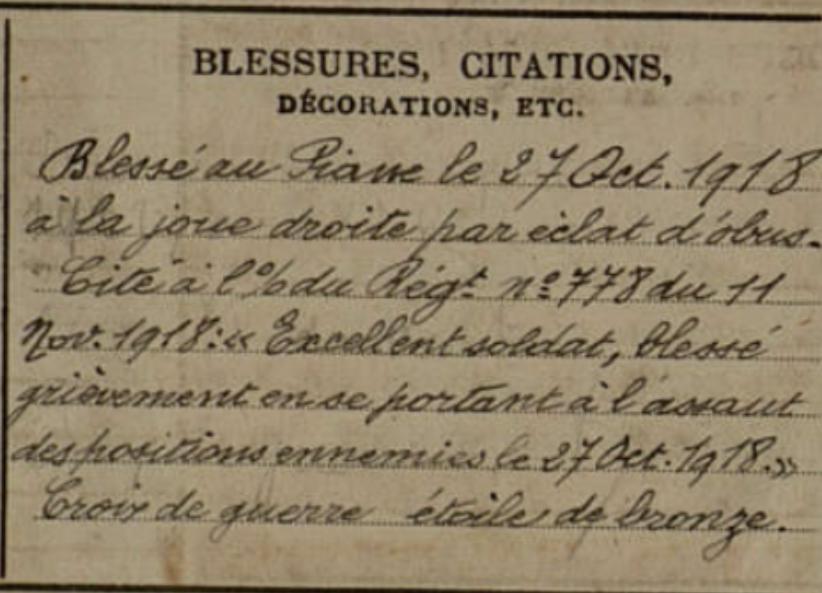 BLESSURES, CITATIONS,
DÉCORATIONS, ETC.
Blessé au Piave le 27 Oct. 1918
à la joue droite par éclat d'obus.
Cité à l'% du Régt nº 778 du 11
Nov. 1918: « Excellent soldat, blessé
grièvement en se portant à l'assaut
des positions ennemies le 27 Oct. 1918.»
Croix de guerre étoile de bronze.